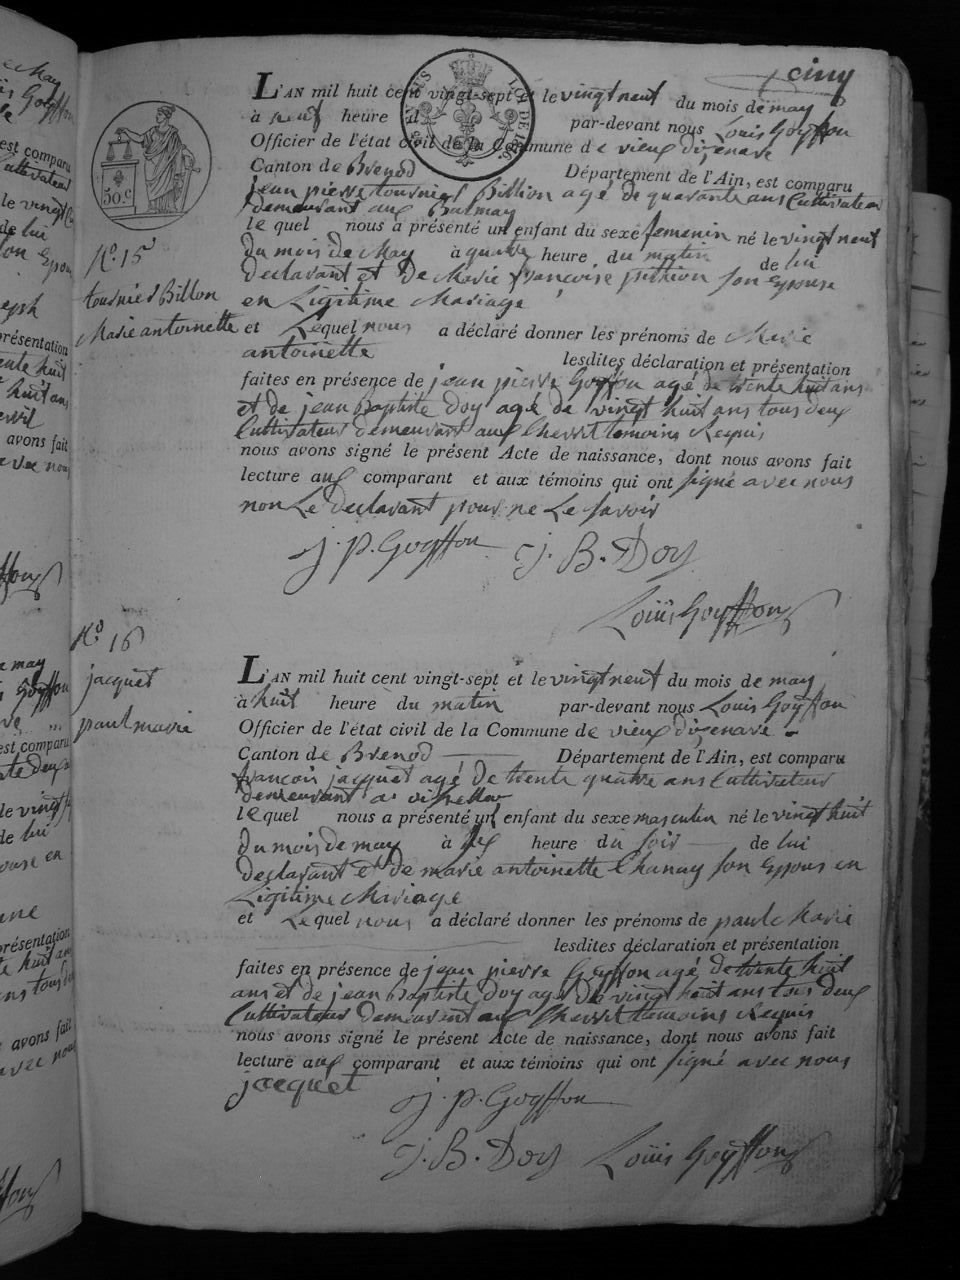 cinq
L'AN mil huit cent vingt-sept et le vingt neuf du mois de may
à neuf heure d par-devant nous Louis Goÿffon
Officier de l'état civil de la Commune de vieux dizenave
Canton de Brenod Département de l'Ain, est comparu
jean pierre tournier Billion agé de quarante ans Cultivateur
demeurant aux Balmay
le quel nous a présenté un enfant du sexe femenin né le vingt neuf
du mois de May à quatre heure du matin de lui
declarant et de Marie françoise son Epouse
en Ligitime Mariage
et Lequel nous a déclaré donner les prénoms de Marie
antoinette lesdites déclaration et présentation
faites en présence de jean pierre Goÿffon agé de trente huit ans
et de jean Baptiste Doy agé de vingt huit ans tous deux
Cultivateur demeurant aux temoins Requis
nous avons signé le présent Acte de naissance, dont nous avons fait
lecture aux comparant et aux témoins qui ont signé avec nous
non Le declarant pour ne Le savoir
J. P. Goÿffon J. B. Doy
Louis Goÿffon
50.C
N.° 15
tournier Billon
Marie antoinette
N.° 16
jacquet
paul marie
L'AN mil huit cent vingt-sept et le vingt neuf du mois de may
à huit heure du matin par-devant nous Louis Goÿffon
Officier de l'état civil de la Commune de vieux dizenave
Canton de Brenod Département de l'Ain, est comparu
françois jacquet agé de trente quatre ans Cultivateur
demeurant a
le quel nous a présenté un enfant du sexe masculin né le vingt huit
du mois de may à heure du soir de lui
declarant et de marie antoinette Chanay son Epouse en
Ligitime Mariage
et Lequel nous a déclaré donner les prénoms de paul Marie
lesdites déclaration et présentation
faites en présence de jean pierre Goÿffon agé de trente huit
ans et de jean Baptiste Doy agé de vingt huit ans tous deux
Cultivateur demeurant aux temoins Requis
nous avons signé le présent Acte de naissance, dont nous avons fait
lecture aux comparant et aux témoins qui ont signé avec nous
jacquet J. P. Goÿffon
J. B. Doy Louis Goÿffon